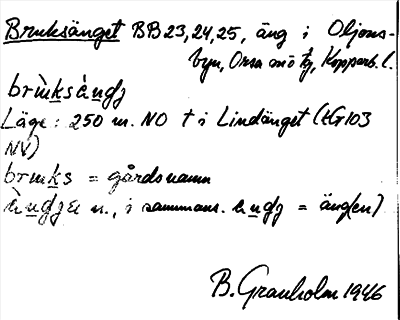 Bruksänget BB23,24,25, äng i Oljons-
byn, Orsa snö tg, Kopparb. l.
brùksàŋgʒ
Läge: 250 m. NO † i Lindänget (HG103
NV)
bruks = gårdsnamn
n., i sammans. = äng(en)
B. Granholm 1946